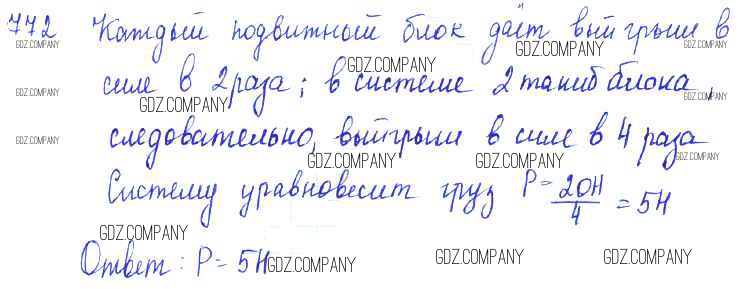 772 Каждый подвижный блок даёт выигрыш в
GDZ.COMPANY GDZ.COMPANY GDZ.COMPANY
силе в 2 раза; в системе 2 таких блока,
GDZ.COMPANY GDZ.COMPANY GDZ.COMPANY
следовательно, выигрыш в силе в 4 раза
GDZ.COMPANY GDZ.COMPANY GDZ.COMPANY GDZ.COMPANY
Систему уравновесит груз P = 20Н/4 = 5Н
GDZ.COMPANY
Ответ: P = 5Н
GDZ.COMPANY GDZ.COMPANY GDZ.COMPANY